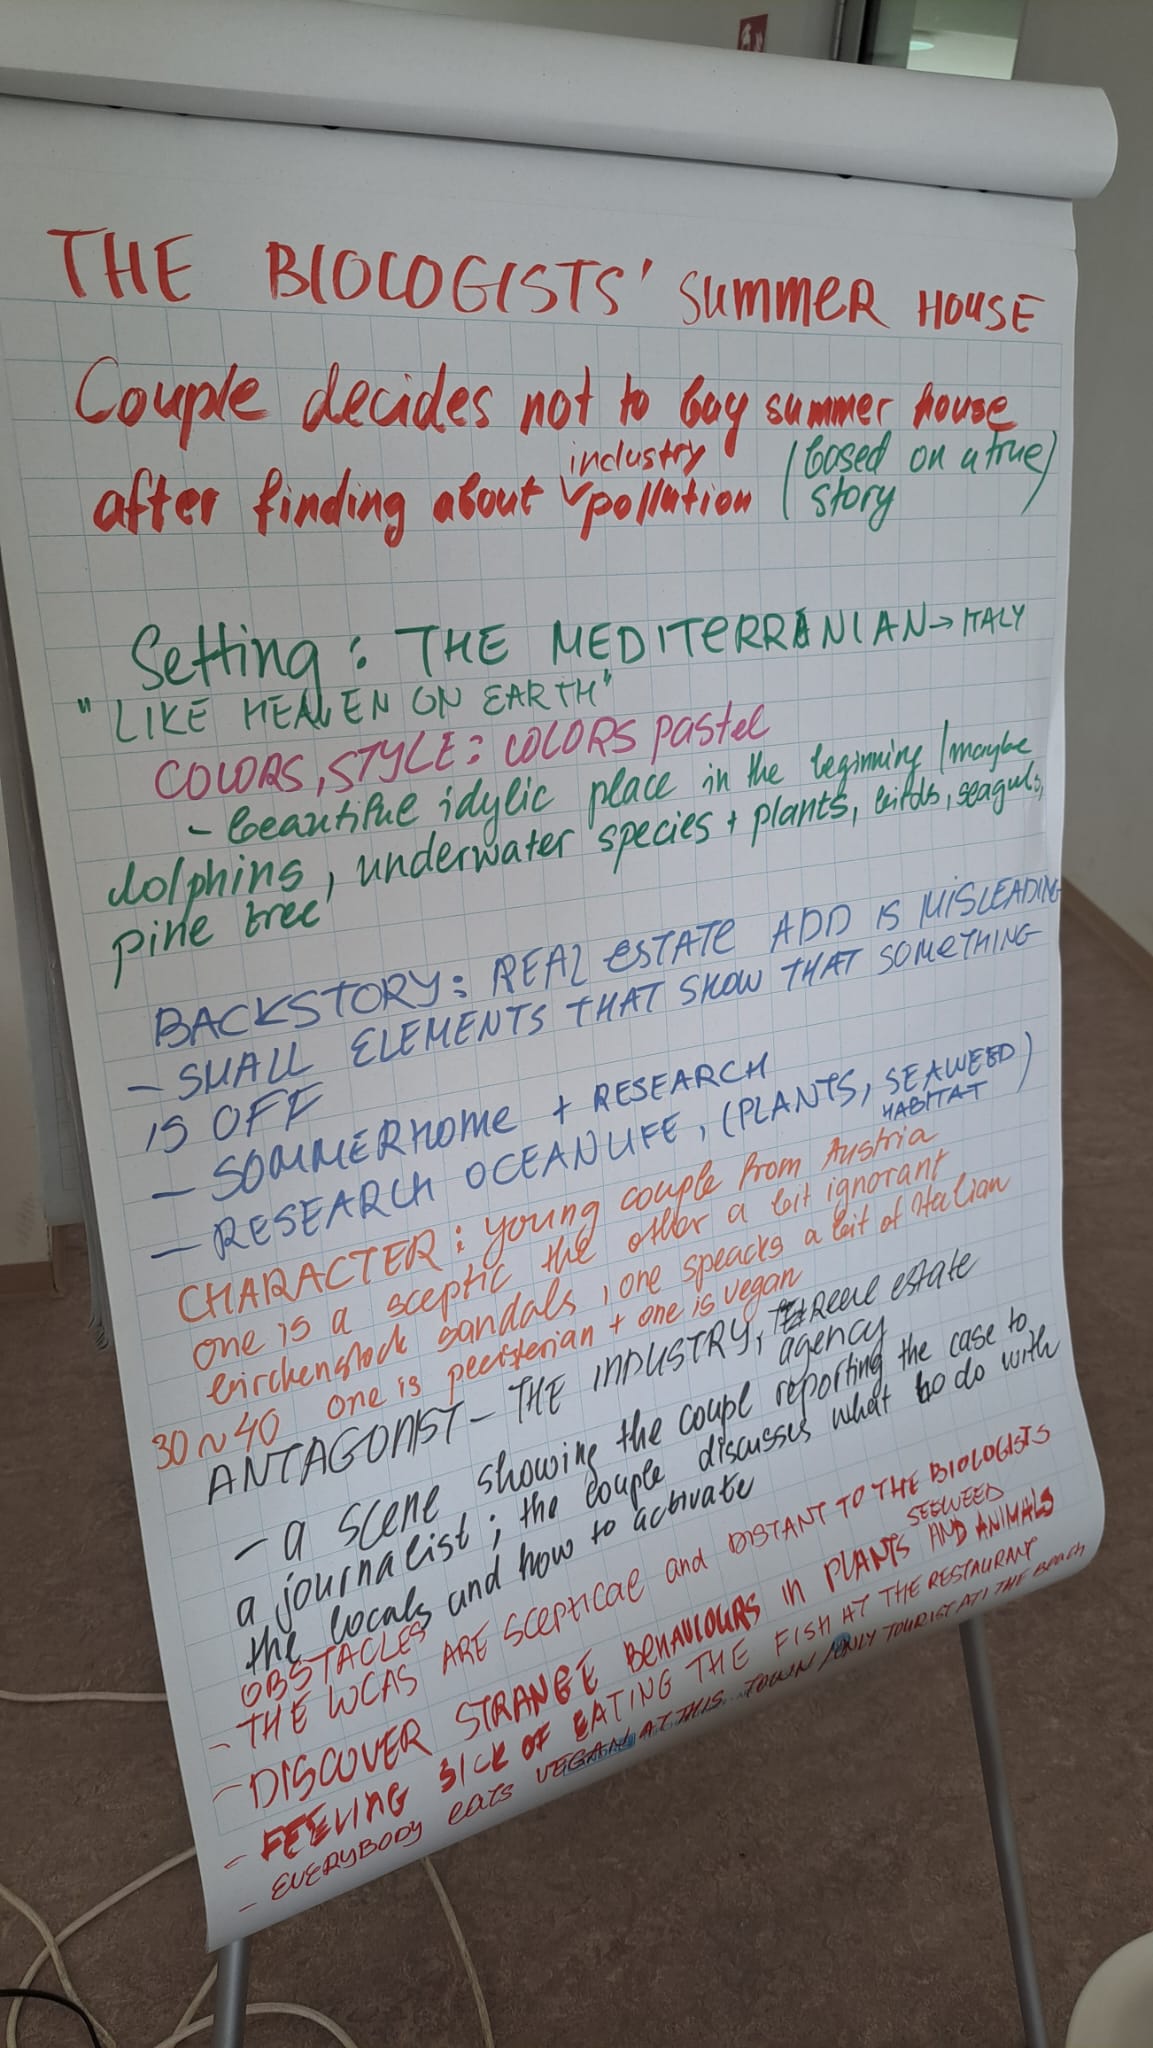 THE BIOLOGISTS' SUMMER HOUSE
Couple decides not to buy summer house
after finding about industry pollution (based on a true story)
Setting: THE MEDITERRANIAN → ITALY
"LIKE HEAVEN ON EARTH"
COLORS, STYLE: COLORS pastel
- beautiful idylic place in the beginning (maybe
dolphins, underwater species + plants, birds, seaguls,
pine tree
BACKSTORY: REAL ESTATE ADD IS MISLEADING
- SMALL ELEMENTS THAT SHOW THAT SOMETHING
IS OFF
- SOMMERHOME + RESEARCH
- RESEARCH OCEANLIFE, (PLANTS, SEAWEED)
HABITAT
CHARACTER: young couple from Austria
one is a sceptic the other a bit ignorant
birckenstock sandals, one speacks a bit of Italian
30~40 one is pecsterian + one is vegan
ANTAGONIST - THE INDUSTRY, Real estate
agency
- a scene showing the coupl reporting the case to
a journalist; the couple discusses what to do with
the locals and how to activate
OBSTACLES
- THE LOCAS ARE SCEPTICAL and DISTANT TO THE BIOLOGISTS
- DISCOVER STRANGE BEHAVIOURS in PLANTS SEEWEED AND ANIMALS
- FEELING SICK OF EATING THE FISH AT THE RESTAURANT
- EVERYBODY eats VEGAN AT THIS TOWN / ONLY TOURIST AT THE Beach